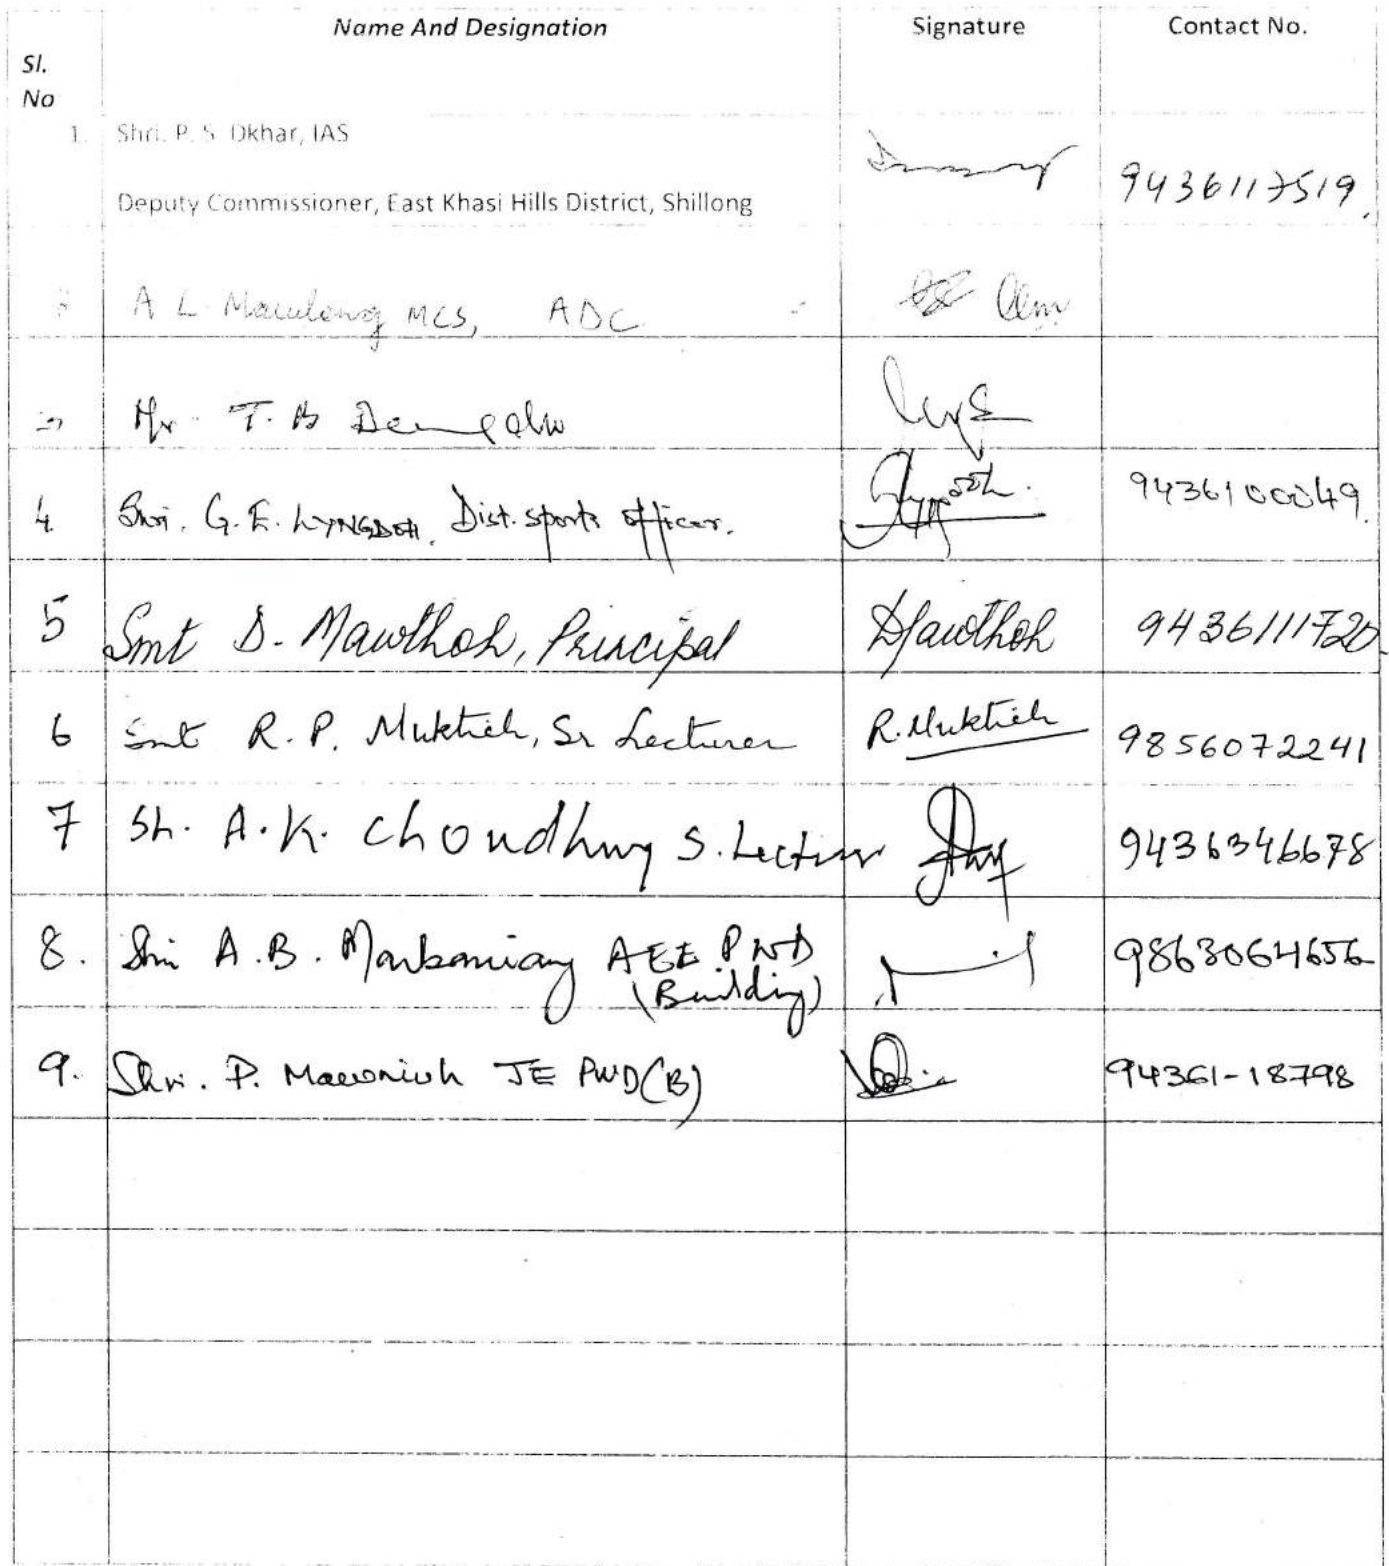 Name And Designation Signature Contact No.
Sl.
No
1. Shri. P. S. Dkhar, IAS
Deputy Commissioner, East Khasi Hills District, Shillong 9436117519.
A L MCS, ADC
Mr. T. B
4 Shri. G. E. LYNGDOH, Dist. sports officer. 9436100049.
5 Smt D. Mawthoh, Principal DMawthoh 9436111720
6 Smt R. P. Muktieh, Sr Lecturer R. Muktieh 9856072241
7 Sh. A. K. Choudhury S. Lecturer 9436346678
8. Shri A. B. AEE PWD
(Building) 9863064656
9. Shri. P. JE PWD(B) 94361-18798